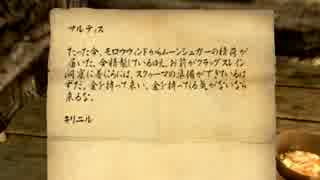 サルティス
たった今、モロウウィンドからムーンシュガーの積荷が
届いた。今精製しているはえ、お前がクラッグスレイン
洞窟に着くころには、スクゥーマの準備ができているは
ずだ。金を持って来い。金を持ってくる気がないなら
来るな。
キリニル